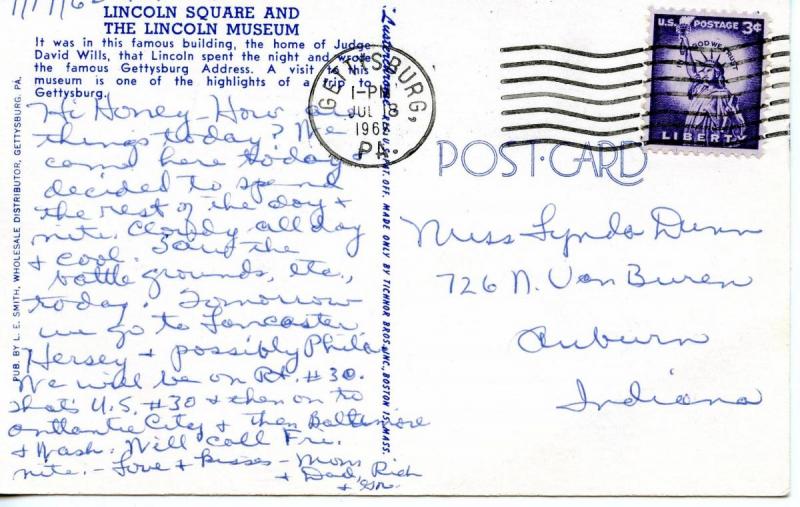 LINCOLN SQUARE AND
THE LINCOLN MUSEUM
It was in this famous building, the home of Judge
David Wills, that Lincoln spent the night and wrote
the famous Gettysburg Address. A visit to this
museum is one of the highlights of a trip to
Gettysburg.
Hi Honey - How are
things today? We
came here today &
decided to spend
the rest of the day &
nite. Cloudy all day
& cool. Saw the
battle grounds, etc.,
today. Tomorrow
we go to Lancaster
Hersey & possibly Phila.
We will be on Rt. #30.
That's U.S. #30 & then on to
Antlantic City & then Baltimore
& Wash. Will call Fri.
nite. - Love & kisses - Mom
& Dad, Rich
&
PUB. BY L. E. SMITH, WHOLESALE DISTRIBUTOR, GETTYSBURG, PA.
"Lusterchrome" REG. U.S. PAT. OFF. MADE ONLY BY TICHNOR BROS., INC., BOSTON 15, MASS.
GETTYSBURG,
1-PM
JUL 18
196
PA.
U.S. POSTAGE 3¢
IN GOD WE TRUST
LIBERTY
POST-CARD
Miss Lynda Dunn
726 N. Van Buren
Auburn
Indiana